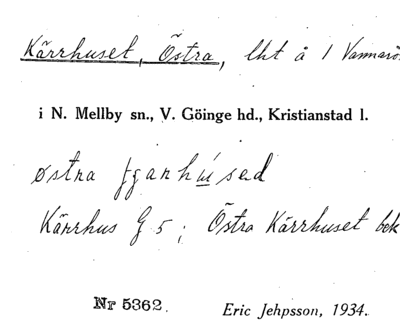 Kärrhuset, Östra, lht å 1 Vannarö
i N. Mellby sn., V. Göinge hd., Kristianstad l.
østra
Kärrhus G 5; Östra Kärrhuset bek
Nr 5362.
Eric Jehpsson, 1934.